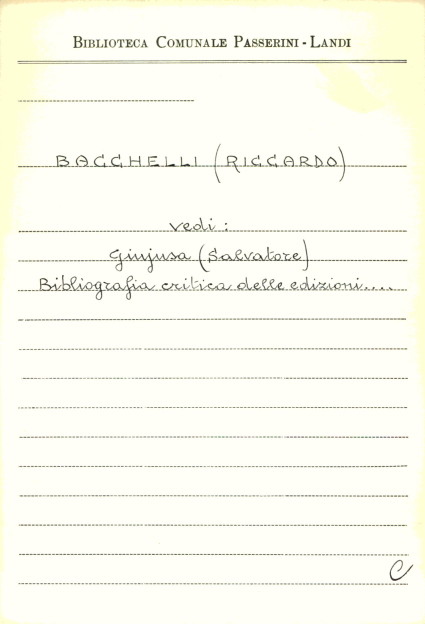 BIBLIOTECA COMUNALE PASSERINI - LANDI
BACCHELLI (RICCARDO)
vedi :
Giujusa (Salvatore)
Bibliografia critica delle edizioni....
C